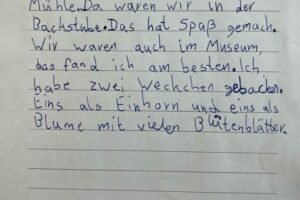 Mühle. Da waren wir in der
Backstube. Das hat Spaß gemach.
Wir waren auch im Museum,
das fand ich am besten. Ich
habe zwei Weckchen gebacken.
Eins als Einhorn und eins als
Blume mit vielen Blütenblätter.